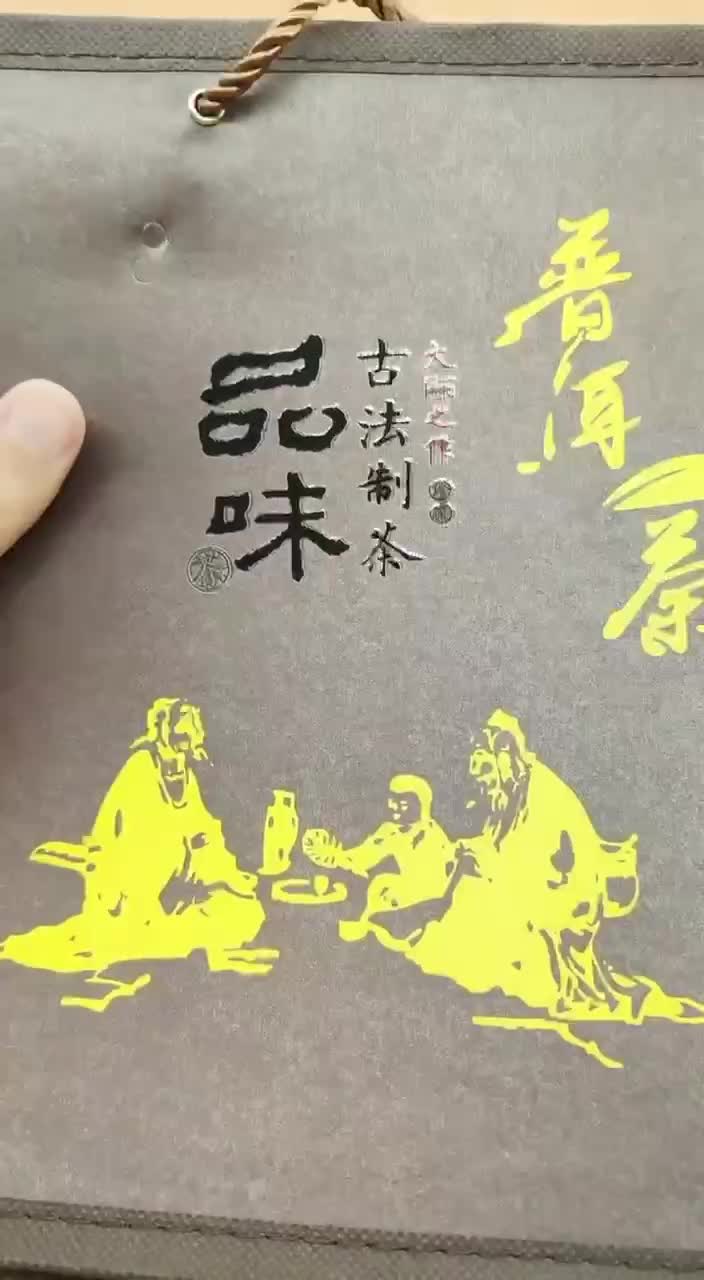 普洱茶
大師之作
古法制茶
品味
茶